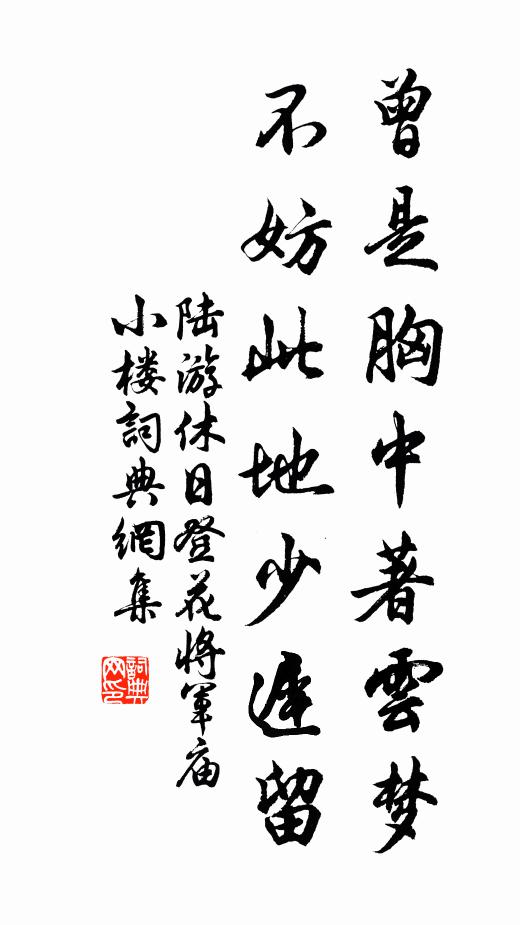 曾是胸中著雲梦
不妨此地少遲留
陆游休日登花将軍庙
小楼詞典網集
詞典
网印